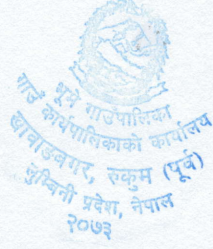 भूमे गाउँपालिका
गाउँ कार्यपालिकाको कार्यालय
खाबाङबगर, रुकुम (पूर्व)
लुम्बिनी प्रदेश, नेपाल
२०७३